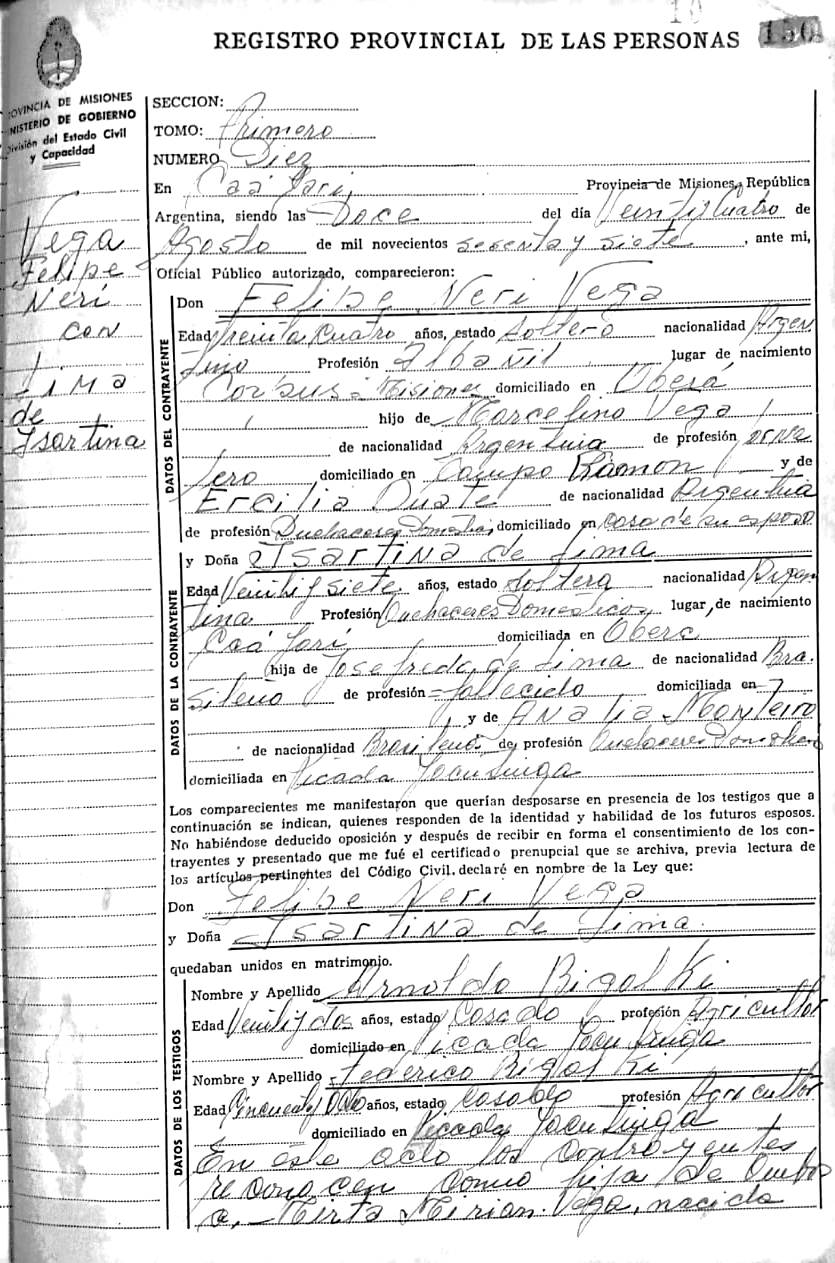 10
REGISTRO PROVINCIAL DE LAS PERSONAS 150
PROVINCIA DE MISIONES
MINISTERIO DE GOBIERNO
División del Estado Civil
y Capacidad
Vega
Felipe
Neri
con
Lima
de
Isartina
SECCION:
TOMO: Primero
NUMERO Diez
En Caá Yarí, Provincia de Misiones, República
Argentina, siendo las Doce del día Veinticuatro de
Agosto de mil novecientos sesenta y siete, ante mi,
Oficial Público autorizado, comparecieron:
DATOS DEL CONTRAYENTE
Don Felipe Neri Vega
Edad treinta cuatro años, estado soltero nacionalidad Argen
tino Profesión Albañil lugar de nacimiento
Corpus - Misiones domiciliado en Oberá
hijo de Marcelino Vega
de nacionalidad Argentina de profesión jorna
lero domiciliado en Campo Ramon y de
Ercilia Duarte de nacionalidad Argentina
de profesión Quehaceres Domestico, domiciliado en casa de su esposo
DATOS DE LA CONTRAYENTE
y Doña Isartina de Lima
Edad Veintiysiete años, estado soltera nacionalidad Argen
tina Profesión Quehaceres Domesticos lugar de nacimiento
Caá Yarí domiciliada en Obera
hija de Josefredo de Lima de nacionalidad Bra.
sileño de profesión = fallecido domiciliada en
y de Analia Monteiro
de nacionalidad Brasilena de profesión Quehaceres Domestico
domiciliada en Picada Yacutinga
Los comparecientes me manifestaron que querían desposarse en presencia de los testigos que a
continuación se indican, quienes responden de la identidad y habilidad de los futuros esposos.
No habiéndose deducido oposición y después de recibir en forma el consentimiento de los con-
trayentes y presentado que me fué el certificado prenupcial que se archiva, previa lectura de
los artículos pertinentes del Código Civil. declaré en nombre de la Ley que:
Don Felipe Neri Vega
y Doña Isartina de Lima.
quedaban unidos en matrimonio.
DATOS DE LOS TESTIGOS
Nombre y Apellido Arnoldo Rigolki
Edad Veintiydos años, estado Casado profesión Agricultor
domiciliado en Picada Yacutinga
Nombre y Apellido Federico Rigolki
Edad Cincuentay Ocho años, estado Casado profesión Agricultor
domiciliado en Picada Yacutinga
En este acto los contrayentes
reconocen como hija de Ambo
a. - Mirta Mirian Vega, nacida